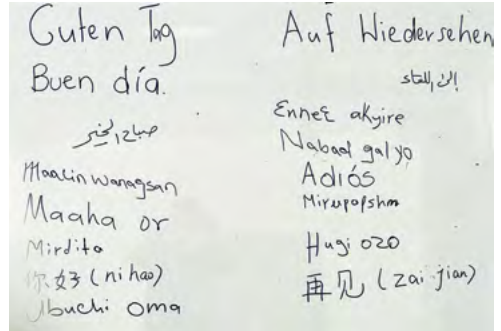 Guten Tag
Buen día.
صباح الخير
Maalin wanagsan
Maaha or
Mirdita
你好 (ni hao)
Ubuchi oma
Auf Wiedersehen
إلى اللقاء
Ɛnneɛ akyire
Nabaad galyo
Adiós
Mirupafshm
Hugi ozo
再见 (zai jian)